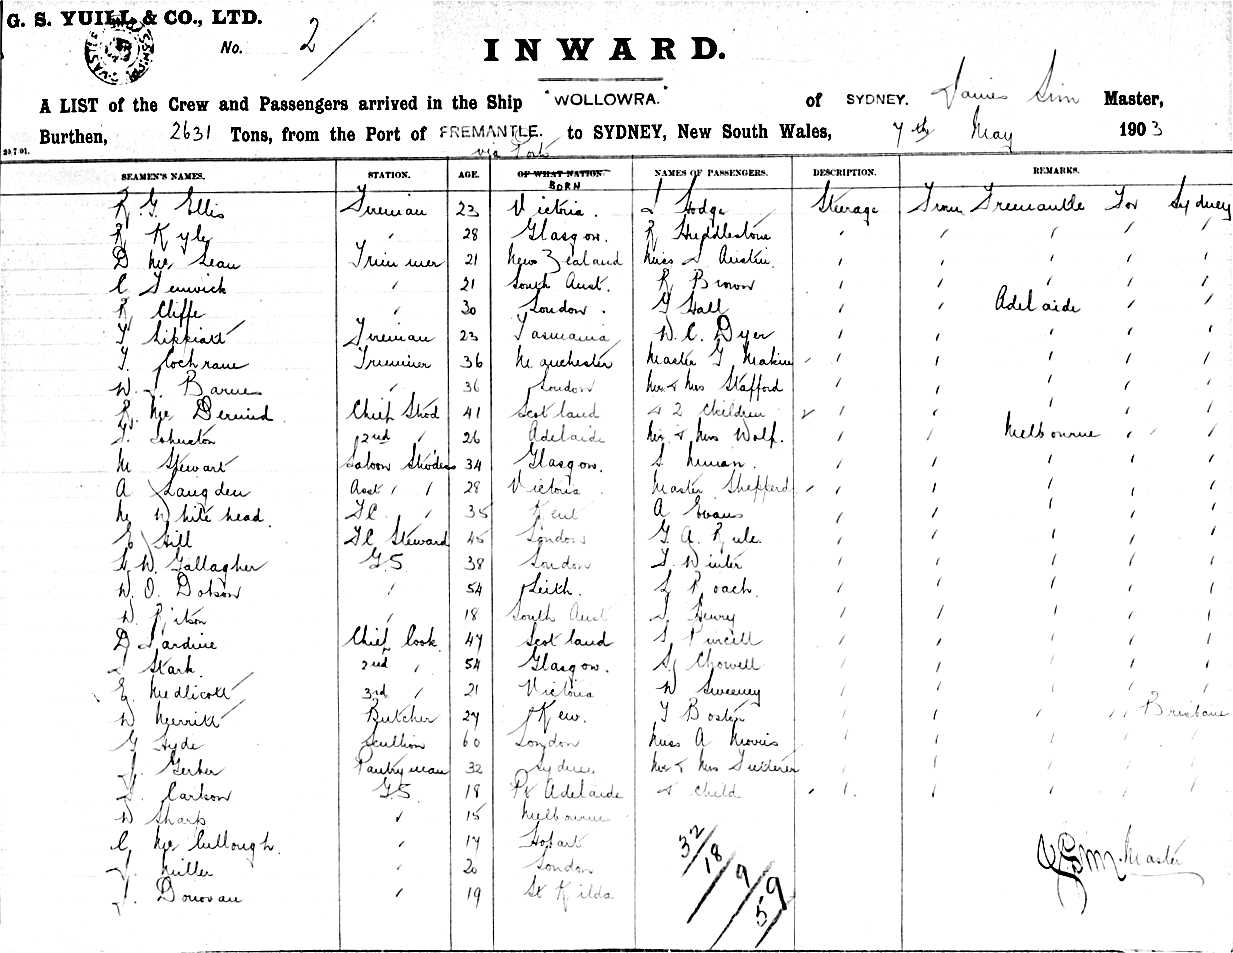 G. S. YUILL & CO., LTD.
No. 2/
INWARD.
A LIST of the Crew and Passengers arrived in the Ship "WOLLOWRA." of SYDNEY. James Sim Master,
Burthen, 2631 Tons, from the Port of FREMANTLE. to SYDNEY, New South Wales, 7th May 1903
via Ports
SEAMEN'S NAMES. STATION. AGE. OF WHAT NATION. BORN NAMES OF PASSENGERS. DESCRIPTION. REMARKS.
R. G. Ellis Fireman 23 Victoria. Hodge Steerage From Fremantle For Sydney
R Kyle " 28 Glasgow. R Huddlestone " " " " "
D McLean Trimmer 21 New Zealand Miss Austin " " " " "
C Fenwick " 21 South Aust. R Brown " " " " "
R Cliffe " 30 London. Hall " " Adelaide " "
Fireman 23 Tasmania W. C. Dyer " " " " "
T. Cochrane Trimmer 36 Manchester Master G Makin " " " " "
W. J. Barnes " 36 London Mr & Mrs Stafford " " " " "
R. McDermid Chief Stwd 41 Scotland & 2 Children " " " " "
J. Johnston 2nd " 26 Adelaide Mr & Mrs Wolf. " " Melbourne " "
M Stewart Saloon Stwdess 34 Glasgow. " " " " "
A Langden Asst " " 28 Victoria Master Shepherd " " " " "
M Whitehead FC " 35 Kent A Evans " " " " "
E Hill FC Steward 45 London G. A. Rule " " " " "
W. Gallagher G.S. 38 London Winter " " " " "
W. O. Dobson " 54 Leith. Roach " " " " "
W. Ritson " 18 South Aust Henry " " " " "
D Jardine Chief Cook 47 Scotland Purcell " " " " "
J Stark 2nd " 54 Glasgow. Chowell " " " " "
E Medlicott 3rd " 21 Victoria W Sweeney " " " " "
W Merritt Butcher 27 Kew. Boster " " " " Brisbane
G Hyde Scullion 60 London Miss A Morris " " " " "
J. Gerber Pantryman 32 Sydney Mr & Mrs " " " " "
Carlson G.S. 18 Pt Adelaide & Child " " " " "
W Sharp " 15 Melbourne
C McCullough. " 17 Hobart
J. Miller " 20 London
J. Donovan " 19 St Kilda
32/18/9/59
Master